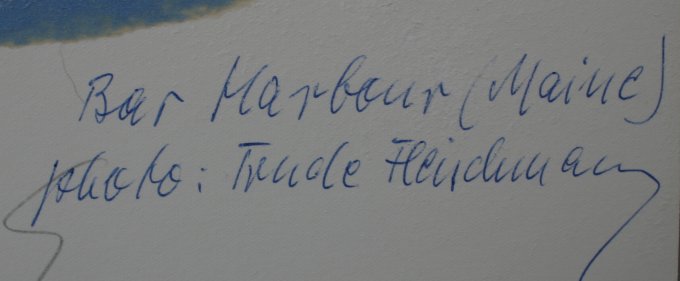 Bar Harbour (Maine)
photo: Trude Fleischman